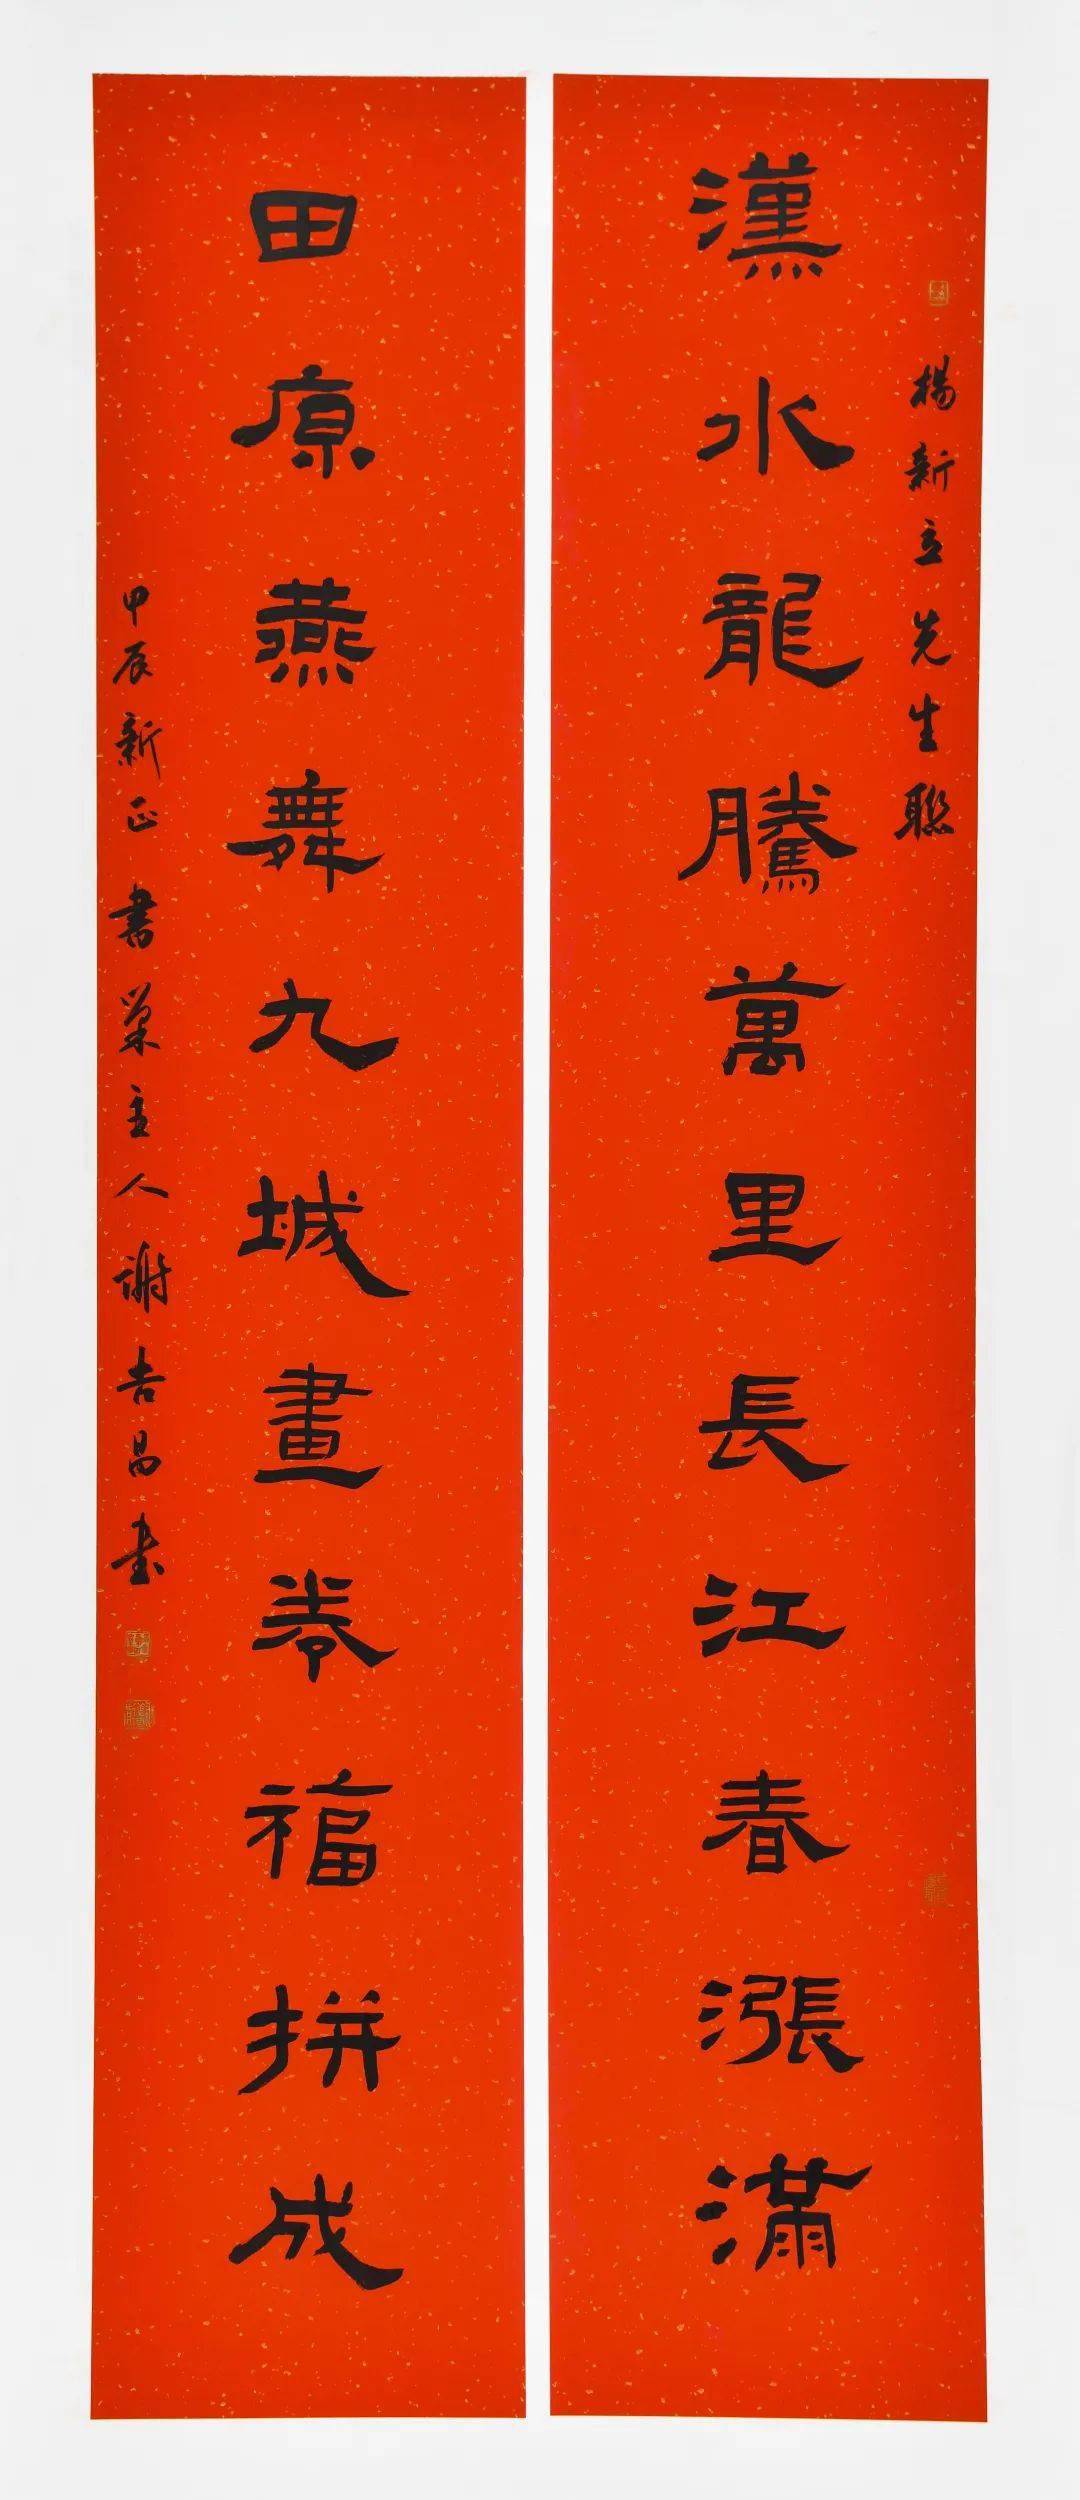 楊新立先生聯
漢水龍騰萬里長江春漲滿
田原燕舞九城畫卷福拼成
甲辰新正書巢主人謝吉昌書